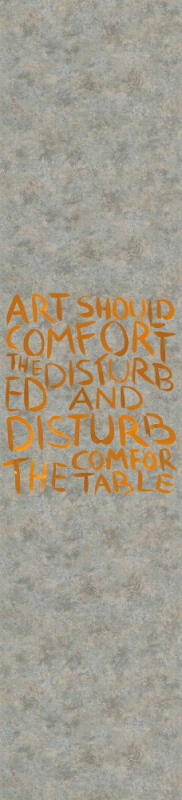 ART SHOULD
COMFORT
THE DISTURB
ED AND
DISTURB
THE COMFOR
TABLE